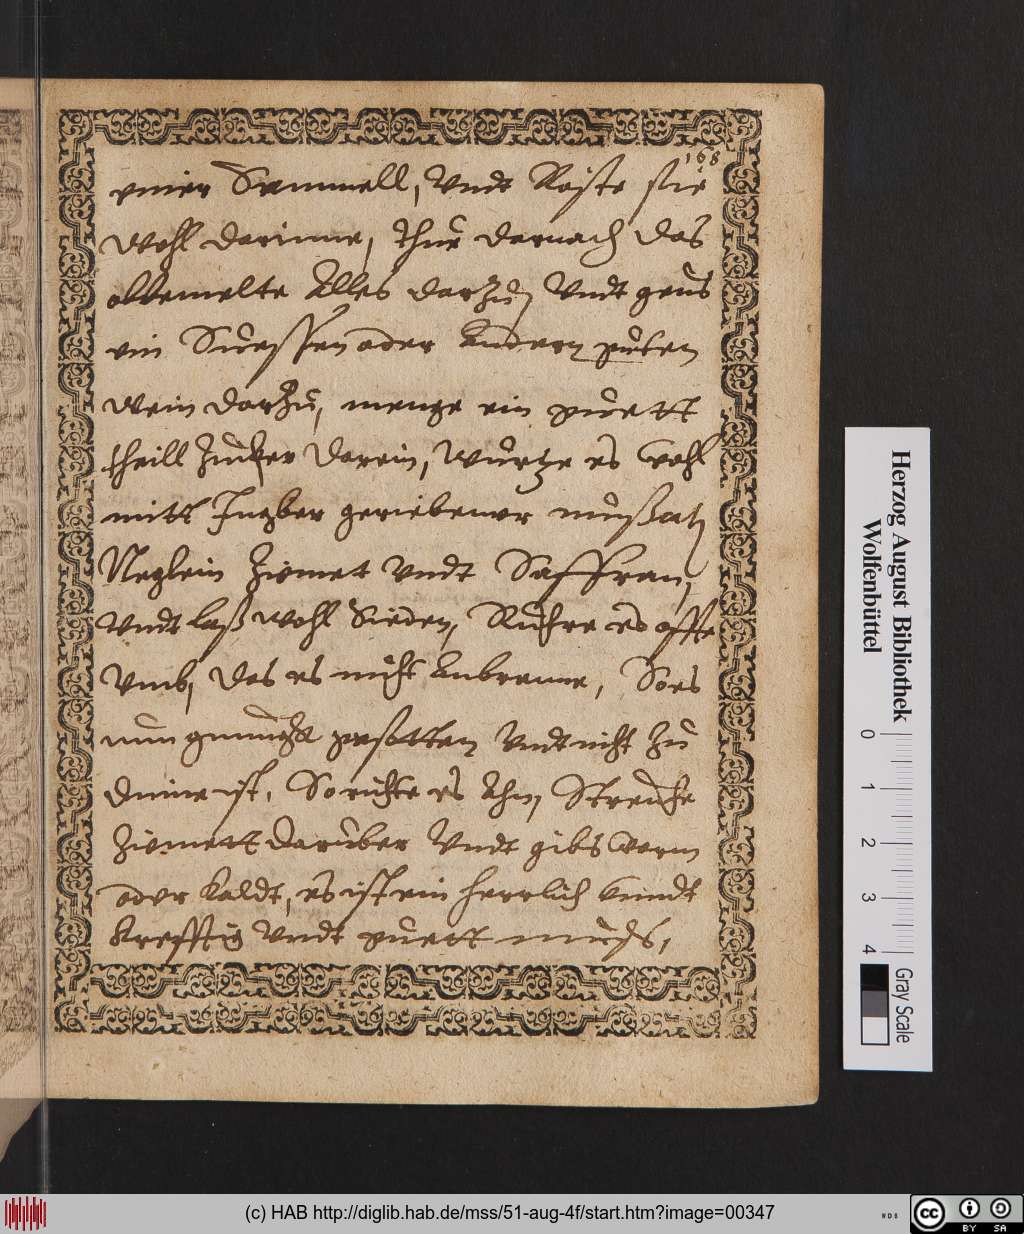 168
einer Semmell, Vndt Röste sie
Wohl darinne, thue darnach das
obbemelte Alles darzu, Vndt geus
ein Suessen oder Andern guten
Wein darzu, menge ein guett
theill Zucker darein, Würtze es Wohl
mitt Ingber geriebener mußcatz
Neglein Zimet Vndt Saffran,
Vndt laß Wohl Sieden, Ruhre es offte
Vmb, das es nicht Anbrenne, So es
nun gesotten Vndt nicht zu
dünne ist, So richte es Ahn, Streuhe
Zimett darüber Vndt gibs Warm
oder kaldt, es ist ein herrlich Vnndt
krefftig Vndt guett
Herzog August Bibliothek
Wolfenbüttel
0 1 2 3 4
Gray Scale
(c) HAB http://diglib.hab.de/mss/51-aug-4f/start.htm?image=00347
WDB
cc BY SA